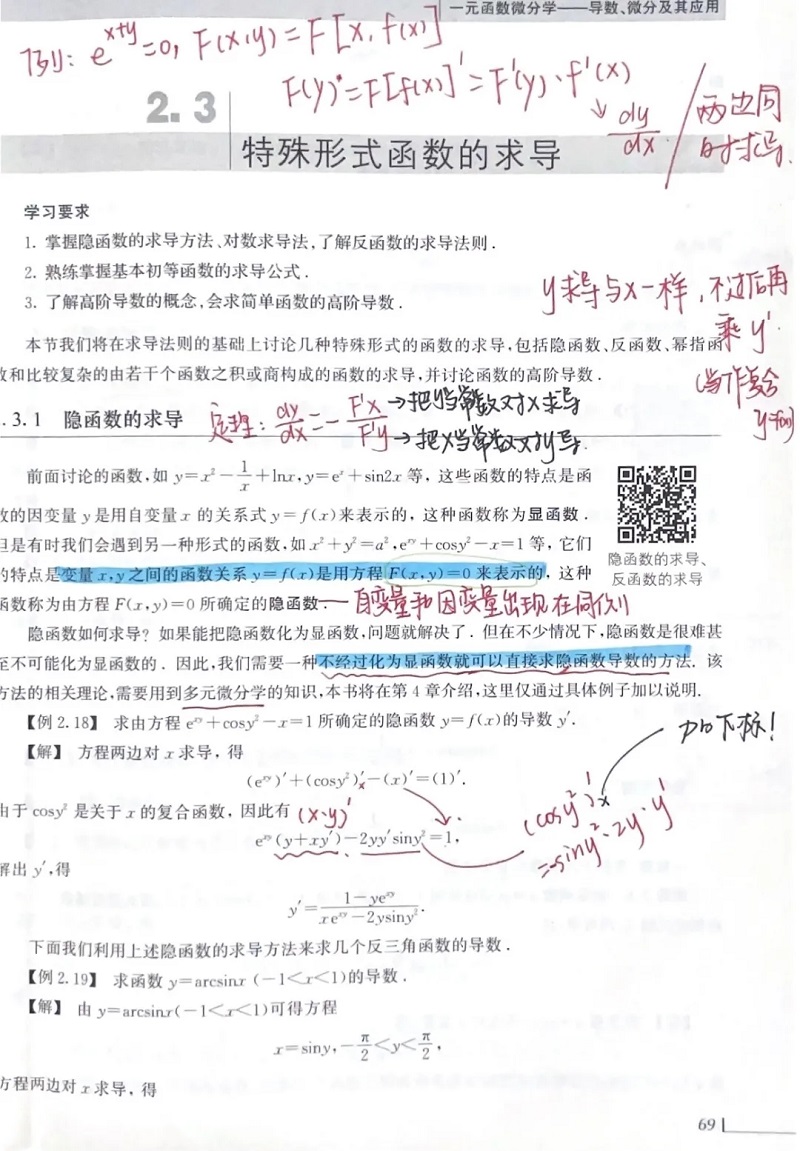 一元函数微分学——导数、微分及其应用
例: e^{x+y}=0, F(x,y)=F[x,f(x)]
F(y)'=F[f(x)]'=F'(y)·f'(x)
↓ dy/dx / 两边同时求导.
2.3
特殊形式函数的求导
学习要求
1. 掌握隐函数的求导方法、对数求导法,了解反函数的求导法则.
2. 熟练掌握基本初等函数的求导公式.
3. 了解高阶导数的概念,会求简单函数的高阶导数.
y求导与x一样,不过后再
乘y'.
(当作复合
y=f(x)
本节我们将在求导法则的基础上讨论几种特殊形式的函数的求导,包括隐函数、反函数、幂指函
和比较复杂的由若干个函数之积或商构成的函数的求导,并讨论函数的高阶导数.
.3.1 隐函数的求导
定理: dy/dx=-F'x/F'y
→把y当常数对x求导
→把x当常数对y导.
前面讨论的函数,如 y=x²-1/x+lnx,y=eˣ+sin2x 等,这些函数的特点是函
的因变量 y 是用自变量 x 的关系式 y=f(x)来表示的,这种函数称为显函数.
但是有时我们会遇到另一种形式的函数,如 x²+y²=a²,e^{xy}+cosy²-x=1 等,它们
的特点是变量 x,y 之间的函数关系 y=f(x)是用方程 F(x,y)=0 来表示的,这种
函数称为由方程 F(x,y)=0 所确定的隐函数.
隐函数的求导、
反函数的求导
自变量和因变量出现在同侧
隐函数如何求导?如果能把隐函数化为显函数,问题就解决了.但在不少情况下,隐函数是很难甚
至不可能化为显函数的.因此,我们需要一种不经过化为显函数就可以直接求隐函数导数的方法.该
方法的相关理论,需要用到多元微分学的知识,本书将在第 4 章介绍,这里仅通过具体例子加以说明.
【例 2.18】 求由方程 e^{xy}+cosy²-x=1 所确定的隐函数 y=f(x)的导数 y'.
加下标!
【解】 方程两边对 x 求导,得
(e^{xy})'+(cosy²)'x-(x)'=(1)'.
由于 cosy² 是关于 x 的复合函数,因此有
(x·y)'
(cosy²)'x
=-siny²·2y·y'
e^{xy}(y+xy')-2yy'siny²=1,
解出 y',得
y'=(1-ye^{xy})/(xe^{xy}-2ysiny²).
下面我们利用上述隐函数的求导方法来求几个反三角函数的导数.
【例 2.19】 求函数 y=arcsinx (-1<x<1)的导数.
【解】 由 y=arcsinx(-1<x<1)可得方程
x=siny,-π/2<y<π/2,
方程两边对 x 求导,得
69